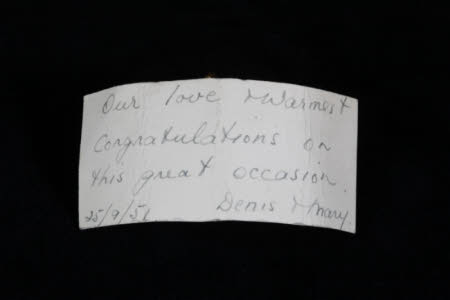 Our love & Warmest
Congratulations on
this great occasion.
25/9/51 Denis & Mary.